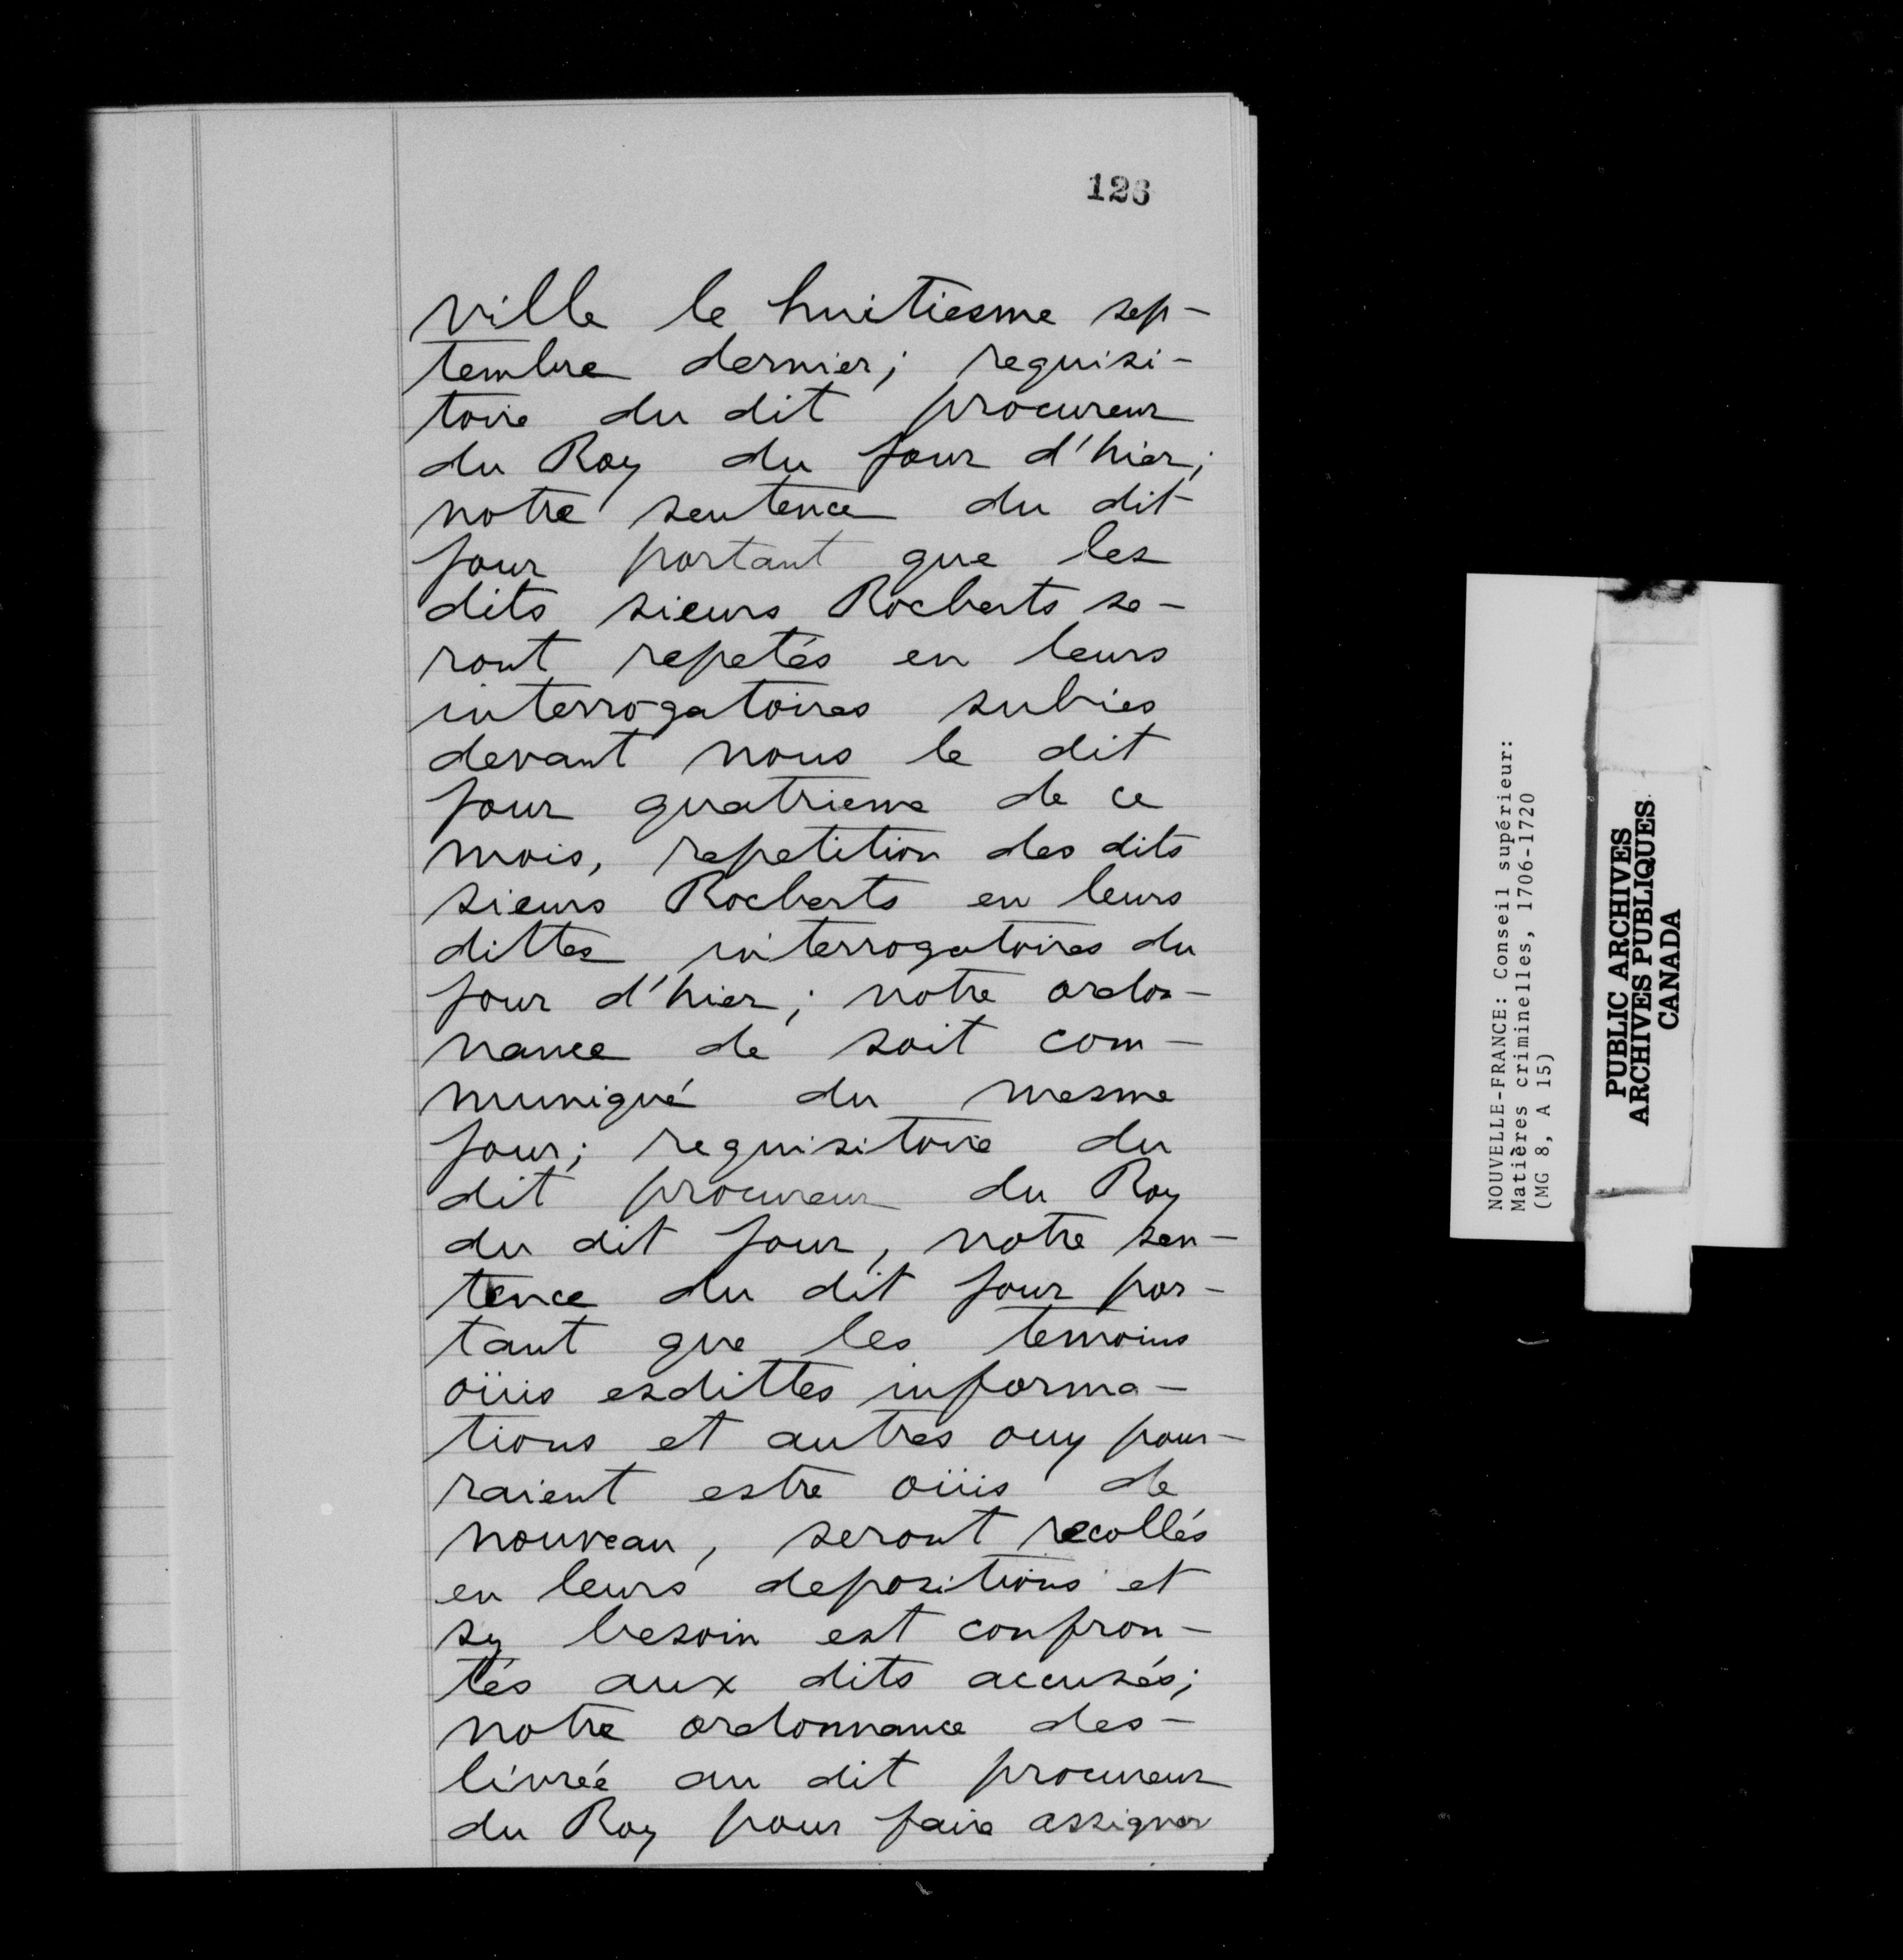 126
ville le huitiesme sep-
tembre dernier; requisi-
toire du dit procureur
du Roy du jour d'hier;
notre sentence du dit
jour portant que les
dits sieurs Rocberts se-
ront repetés en leurs
interrogatoires subies
devant nous le dit
jour quatrieme de ce
mois, repetition des dits
sieurs Rocberts en leurs
dittes interrogatoires du
jour d'hier; notre ordon-
nance de soit com-
muniqué du mesme
jour; requisitoire du
dit procureur du Roy
du dit jour, notre sen-
tence du dit jour por-
tant que les temoins
oüis esdittes informa-
tions et autres ouy pour-
raient estre oüis de
nouveau, seront recollés
en leurs depositions et
sy besoin est confron-
tés aux dits accusés;
notre ordonnance des-
livrée au dit procureur
du Roy pour faire assigner
NOUVELLE-FRANCE: Conseil supérieur:
Matières criminelles, 1706-1720
(MG 8, A 15)
PUBLIC ARCHIVES
ARCHIVES PUBLIQUES
CANADA